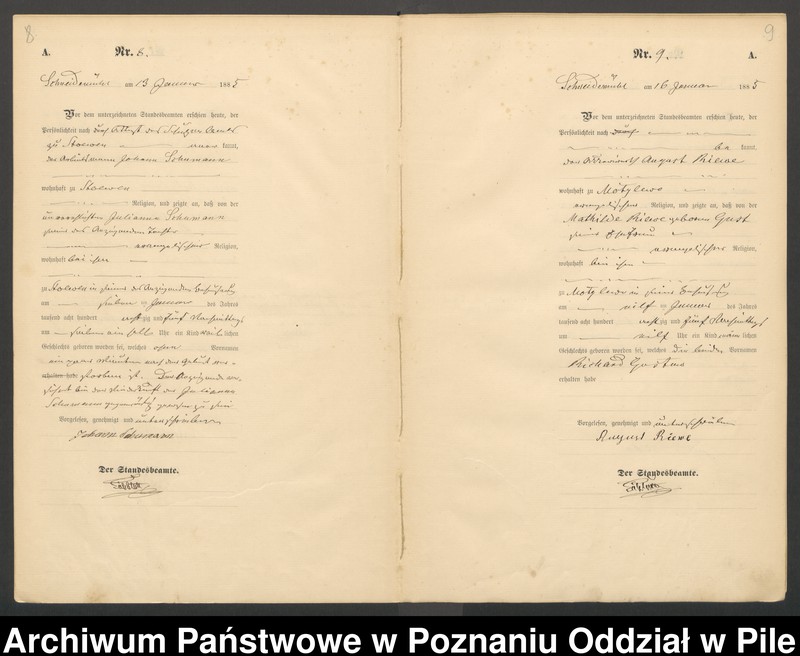 8
A.
Nr. 8.
Schneidemühl am 13 Januar 1885
Vor dem unterzeichneten Standesbeamten erschien heute, der
Persönlichkeit nach durch Attest des Schulzen Amts
zu Stoewen kannt,
der Arbeitsmann Johann Schumann
wohnhaft zu Stoewen
Religion, und zeigte an, daß von der
unverehelichten Julianna Schumann
seines des Anzeigenden Tochter
evangelischer Religion,
wohnhaft bei ihm
zu Stoewen in seines des Anzeigenden Behausung
am sieben ten Januar des Jahres
tausend acht hundert achtzig und fünf Nachmittags
um sieben ein halb Uhr ein Kind weiblichen
Geschlechts geboren worden sei, welches ohne Vornamen
ein paar Minuten nach der Geburt ver-
erhalten habe storben ist. Der Anzeigende ver-
sichert bei der Niederkunft der Julianna
Schumann gegenwärtig gewesen zu sein
Vorgelesen, genehmigt und unterschrieben
Johann Schumann
Der Standesbeamte.
9
Nr. 9.
A.
Schneidemühl am 16 Januar 1885
Vor dem unterzeichneten Standesbeamten erschien heute, der
Persönlichkeit nach durch
be kannt,
der August Riewe
wohnhaft zu Motylewo
evangelischer Religion, und zeigte an, daß von der
Mathilde Riewe geborenen Gust
seiner Ehefrau
evangelischer Religion,
wohnhaft bei ihm
zu Motylewo in seiner Behausung
am elf ten Januar des Jahres
tausend acht hundert achtzig und fünf Nachmittags
um elf Uhr ein Kind männlichen
Geschlechts geboren worden sei, welches die beiden Vornamen
Richard Gustav
erhalten habe
Vorgelesen, genehmigt und unterschrieben
August Riewe
Der Standesbeamte.
Archiwum Państwowe w Poznaniu Oddział w Pile